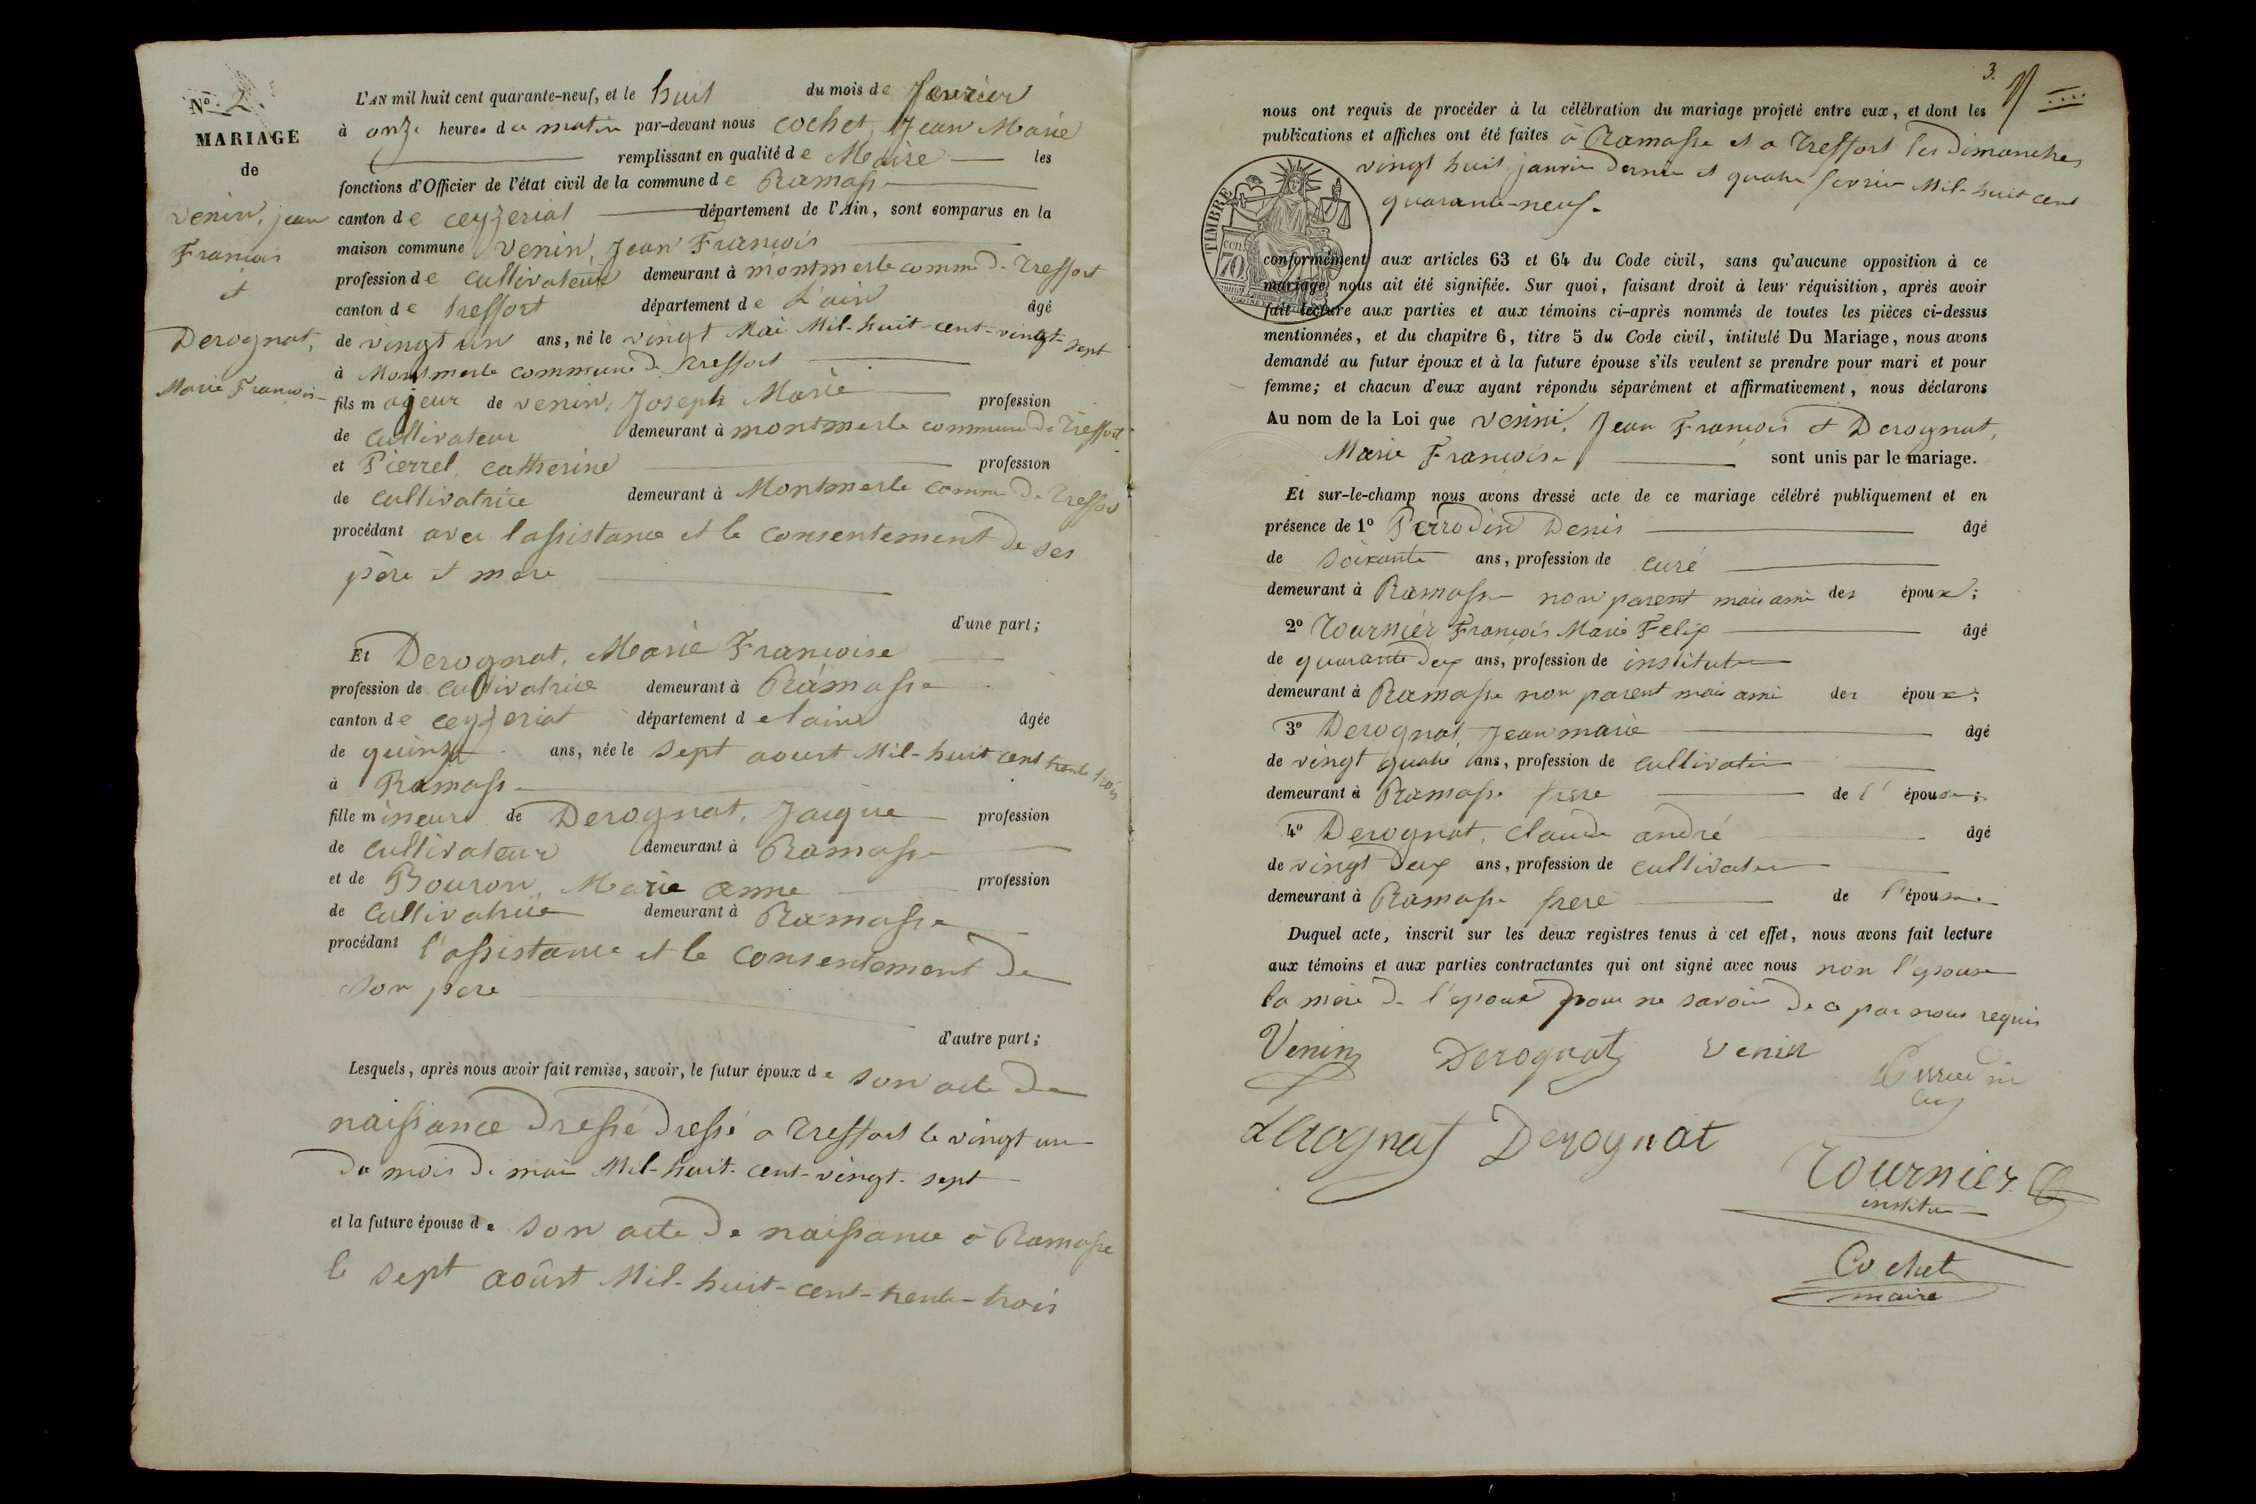 N° 2.
MARIAGE
de
Venin, jean
François
et
Derognat,
Marie Françoise
L'AN mil huit cent quarante-neuf, et le huit du mois de fevrier
à onze heures du matin par-devant nous Cochet, Jean Marie
remplissant en qualité de Maire les
fonctions d'Officier de l'état civil de la commune de Ramasse
canton de Ceyzeriat département de l'Ain, sont comparus en la
maison commune Venin, Jean François
profession de cultivateur demeurant à montmerle comme de Treffort
canton de treffort département de L'ain âgé
de vingt un ans, né le vingt Mai Mil-huit-cent-vingt-sept
à Montmerle commune de Treffort
fils majeur de venin, Joseph Marie profession
de Cultivateur demeurant à montmerle commune de Treffort
et Pierrel, Catherine profession
de cultivatrice demeurant à Montmerle comme de Treffort
procédant avec l'assistance et le consentement de ses
père et mere
d'une part;
Et Derognat, Marie Françoise
profession de cultivatrice demeurant à Ramasse
canton de ceyzeriat département de lain âgée
de quinze ans, née le sept aoust Mil-huit cent trente trois
à Ramasse
fille mineure de Derognat, Jacque profession
de cultivateur demeurant à Ramasse
et de Bouron, Marie anne profession
de Cultivatrice demeurant à Ramasse
procédant l'assistance et le consentement de
son pere
d'autre part;
Lesquels, après nous avoir fait remise, savoir, le futur époux de son acte de
naissance dressé dressé a Treffort le vingt un
du mois de mai Mil-huit-cent-vingt-sept
et la future épouse de son acte de naissance à Ramasse
le sept aoûst Mil-huit-cent-trente-trois
3.
nous ont requis de procéder à la célébration du mariage projeté entre eux, et dont les
publications et affiches ont été faites à Ramasse et a Treffort les Dimanches
vingt huit janvier dernier et quatre fevrier Mil-huit cent
quarante-neuf.
TIMBRE
70
conformément aux articles 63 et 64 du Code civil, sans qu'aucune opposition à ce
mariage nous ait été signifiée. Sur quoi, faisant droit à leur réquisition, après avoir
fait lecture aux parties et aux témoins ci-après nommés de toutes les pièces ci-dessus
mentionnées, et du chapitre 6, titre 5 du Code civil, intitulé Du Mariage, nous avons
demandé au futur époux et à la future épouse s'ils veulent se prendre pour mari et pour
femme; et chacun d'eux ayant répondu séparément et affirmativement, nous déclarons
Au nom de la Loi que Venin, Jean François et Derognat,
Marie Françoise sont unis par le mariage.
Et sur-le-champ nous avons dressé acte de ce mariage célébré publiquement et en
présence de 1° Perrodin Denis âgé
de soixante ans, profession de curé
demeurant à Ramasse non parent mais ami des époux;
2° Tournier François Marie Felix âgé
de quarante deux ans, profession de instituteur
demeurant à Ramasse non parent mais ami des époux;
3° Derognat, Jean marie âgé
de vingt quatre ans, profession de cultivateur
demeurant à Ramasse frere de l'épouse;
4° Derognat, Claude andré âgé
de vingt deux ans, profession de cultivateur
demeurant à Ramasse frere de l'épouse
Duquel acte, inscrit sur les deux registres tenus à cet effet, nous avons fait lecture
aux témoins et aux parties contractantes qui ont signé avec nous non l'epouse
la mere de l'epoux pour ne savoir de ce par nous requis
Venin Derognat Venin Perrodin
Curé
Derognat Derognat
Tournier
institu
Cochet
maire